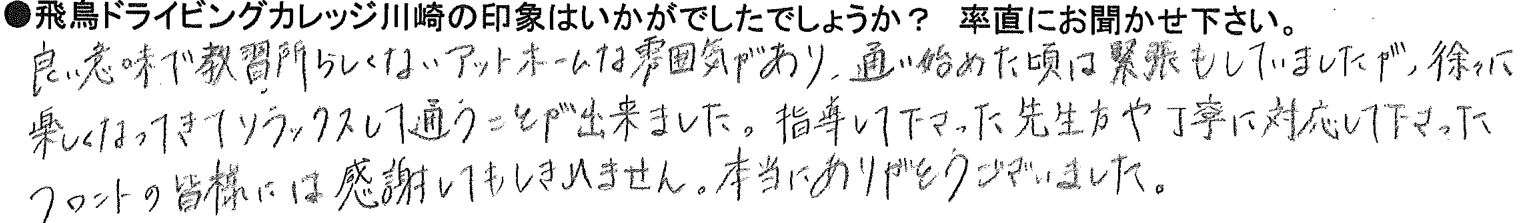 ●飛鳥ドライビングカレッジ川崎の印象はいかがでしたでしょうか？ 率直にお聞かせ下さい。
良い意味で教習所らしくないアットホームな雰囲気があり、通い始めた頃は緊張もしていましたが、徐々に
楽しくなってきてリラックスして通うことが出来ました。指導して下さった先生方や丁寧に対応して下さった
フロントの皆様には感謝してもしきれません。本当にありがとうございました。